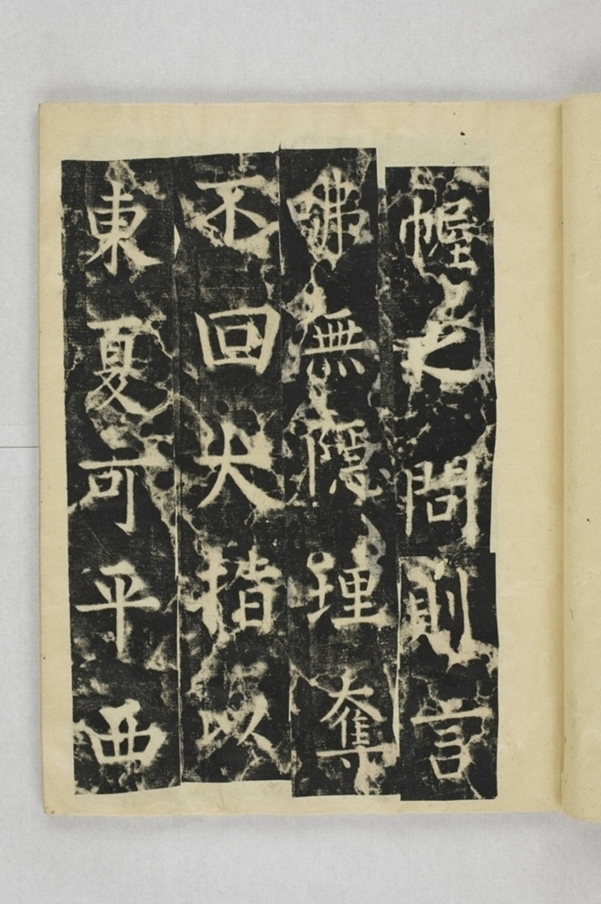 幄之問則言
咈無隱理奪
不回大指以
東夏可平西